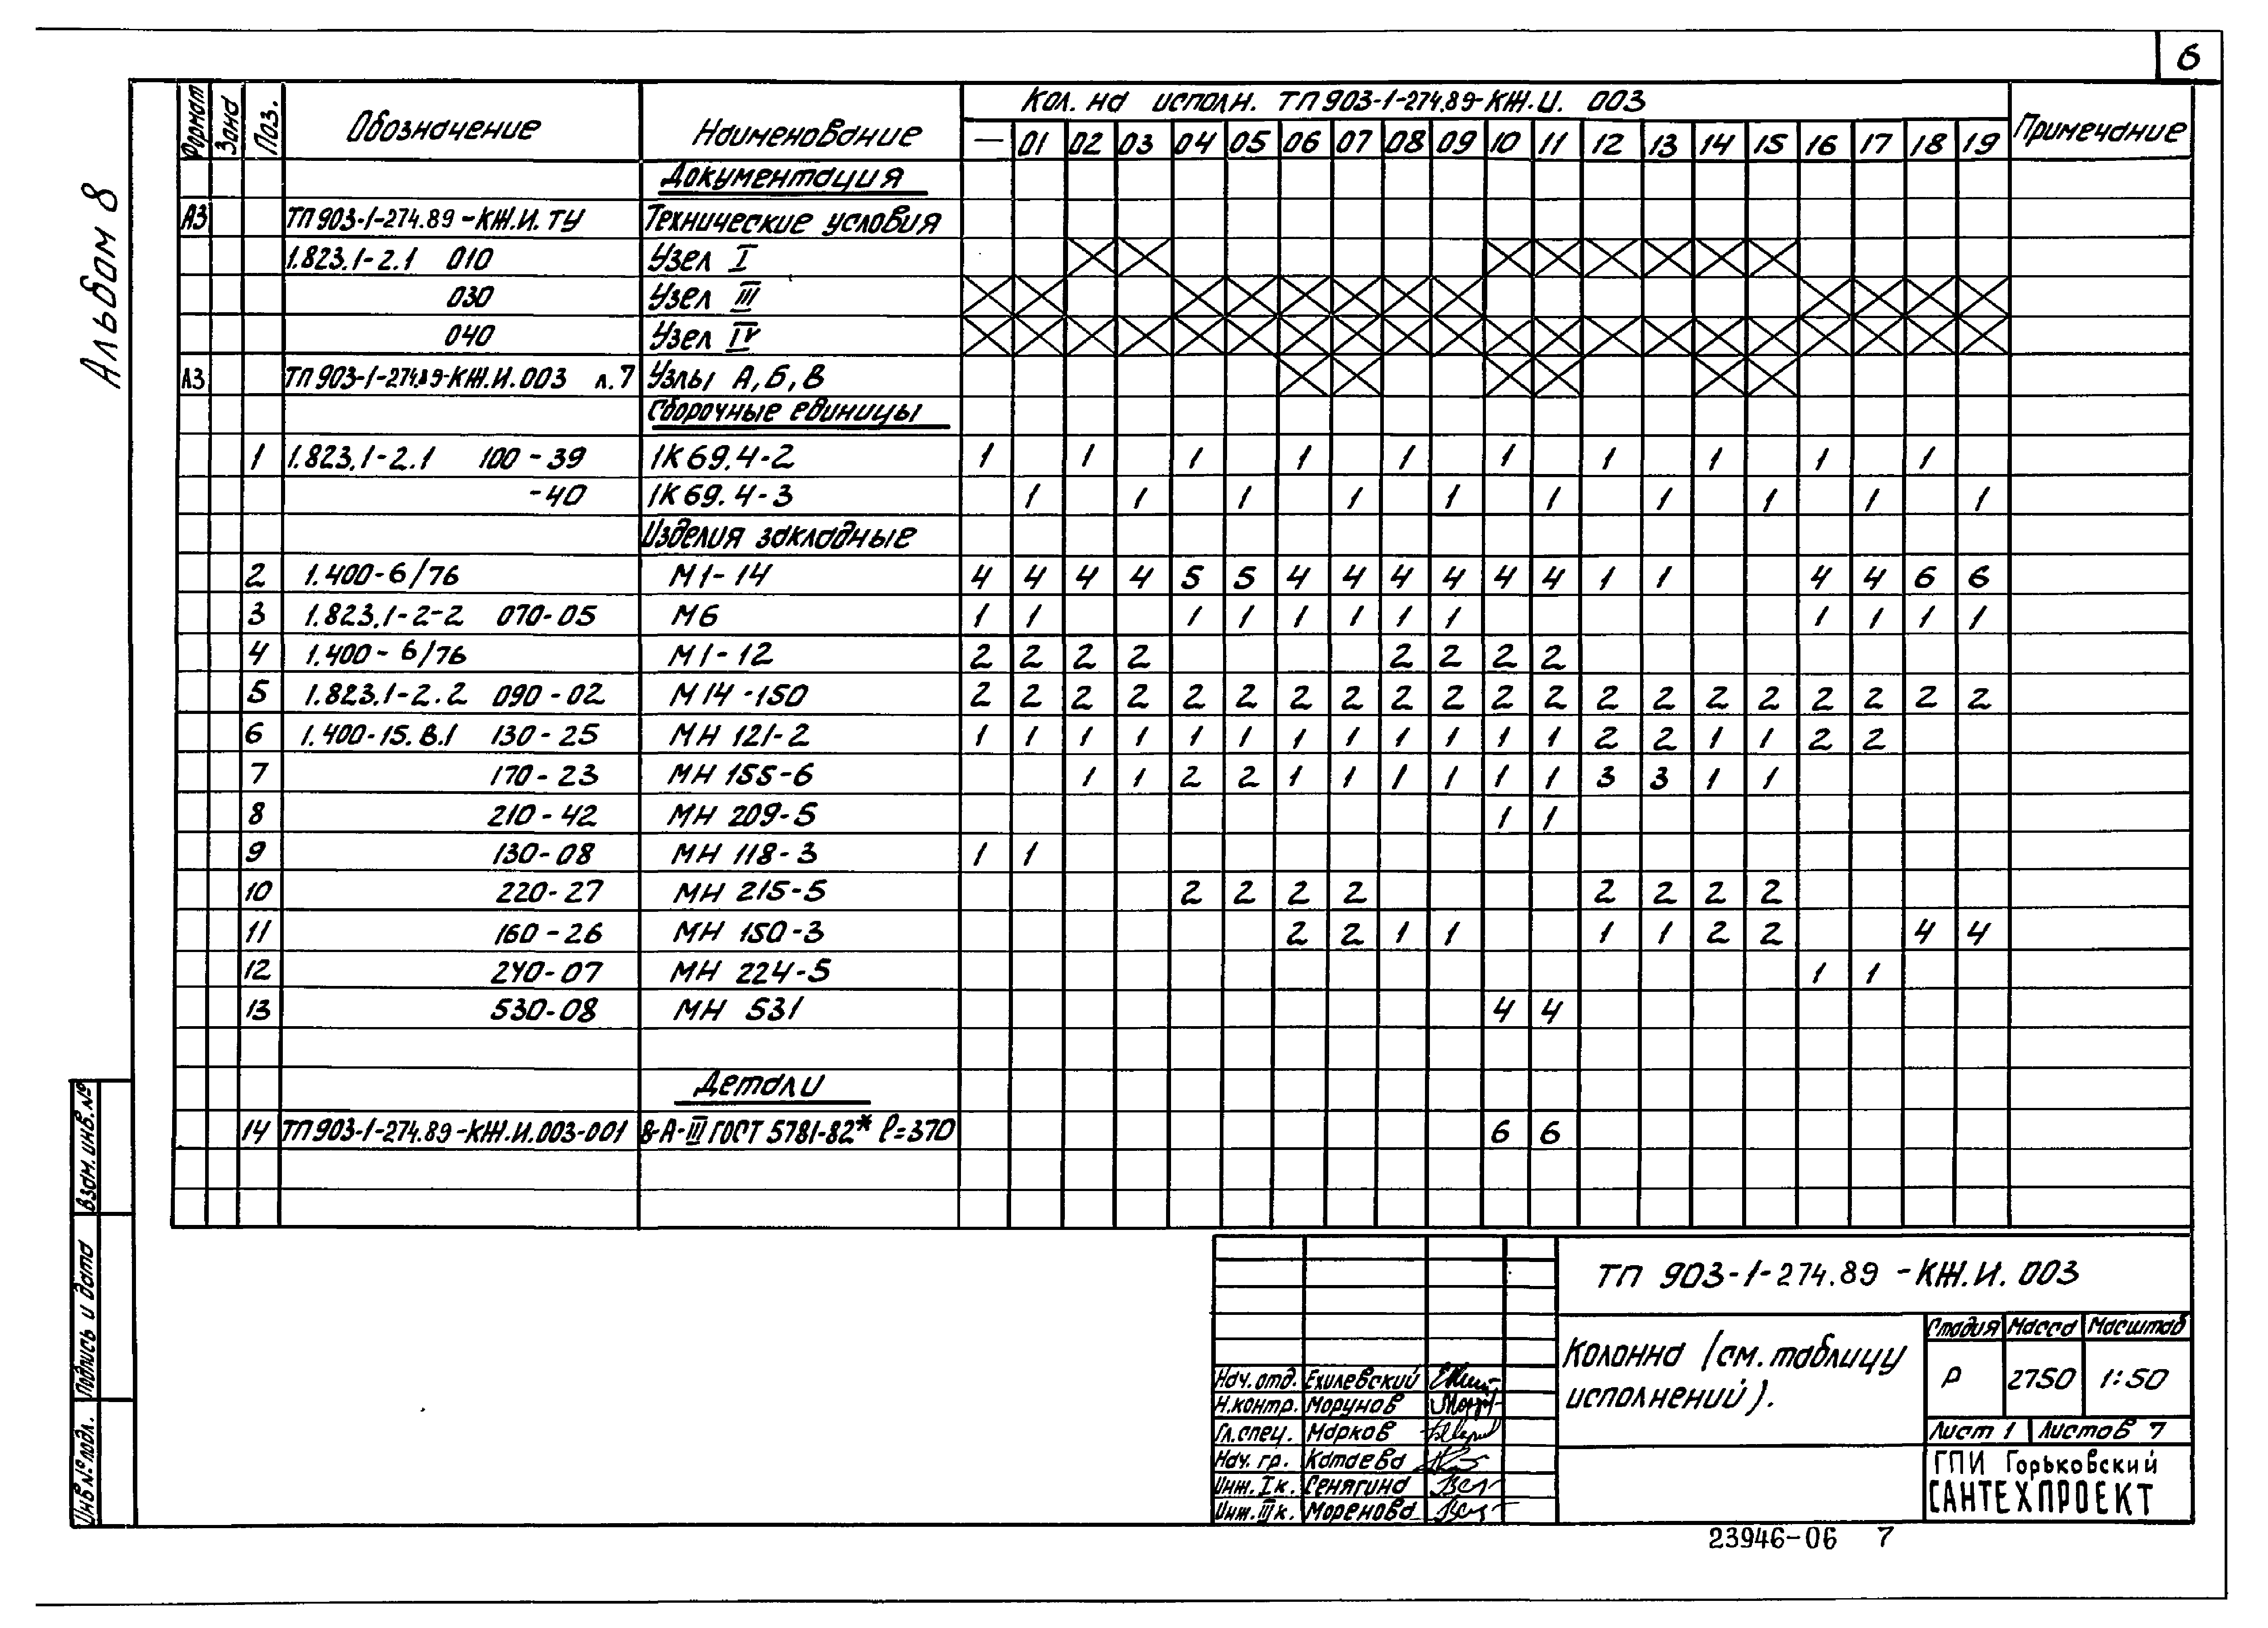 6
Альбом 8
Формат Зона Поз. Обозначение Наименование Кол. на исполн. ТП 903-1-274.89-КЖ.И. 003 Примечание
— 01 02 03 04 05 06 07 08 09 10 11 12 13 14 15 16 17 18 19
Документация
А3 ТП 903-1-274.89-КЖ.И. ТУ Технические условия
1.823.1-2.1 010 Узел I
030 Узел III
040 Узел IV
А3 ТП 903-1-274.89-КЖ.И.003 л.7 Узлы А,Б,В
Сборочные единицы
1 1.823.1-2.1 100-39 1К 69.4-2 1 1 1 1 1 1 1 1 1 1
-40 1К 69.4-3 1 1 1 1 1 1 1 1 1 1
Изделия закладные
2 1.400-6/76 М1-14 4 4 4 4 5 5 4 4 4 4 4 4 1 1 4 4 6 6
3 1.823.1-2-2 070-05 М6 1 1 1 1 1 1 1 1 1 1 1 1
4 1.400-6/76 М1-12 2 2 2 2 2 2 2 2
5 1.823.1-2.2 090-02 М14-150 2 2 2 2 2 2 2 2 2 2 2 2 2 2 2 2 2 2 2 2
6 1.400-15.В.1 130-25 МН 121-2 1 1 1 1 1 1 1 1 1 1 1 1 2 2 1 1 2 2
7 170-23 МН 155-6 1 1 2 2 1 1 1 1 1 1 3 3 1 1
8 210-42 МН 209-5 1 1
9 130-08 МН 118-3 1 1
10 220-27 МН 215-5 2 2 2 2 2 2 2 2
11 160-26 МН 150-3 2 2 1 1 1 1 2 2 4 4
12 240-07 МН 224-5 1 1
13 530-08 МН 531 4 4
Детали
14 ТП 903-1-274.89-КЖ.И.003-001 8-А-III ГОСТ 5781-82* ℓ=370 6 6
Взам.инв.№
Подпись и дата
Инв№подл.
ТП 903-1-274.89-КЖ.И. 003
Колонна (см.таблицу
исполнений).
Стадия Масса Масштаб
Р 2750 1:50
Лист 1 Листов 7
ГПИ Горьковский
САНТЕХПРОЕКТ
Нач.отд. Ехилевский
Н.контр. Морунов
Гл.спец. Марков
Нач. гр. Катаева
Инж. I к. Сенягина
Инж. III к. Моренова
23946-06 7